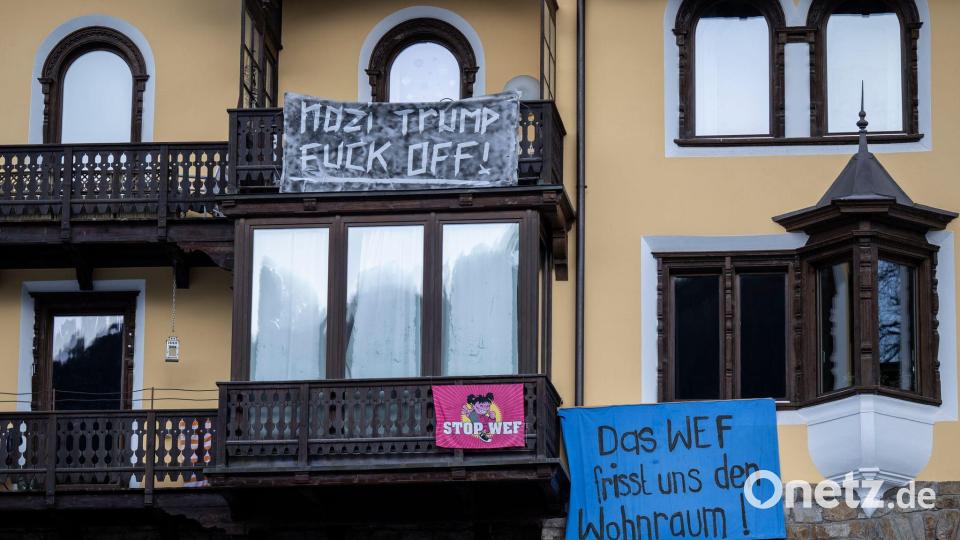 NAZI TRUMP
FUCK OFF!
STOP WEF
Das WEF
frisst uns den
Wohnraum!
Onetz.de